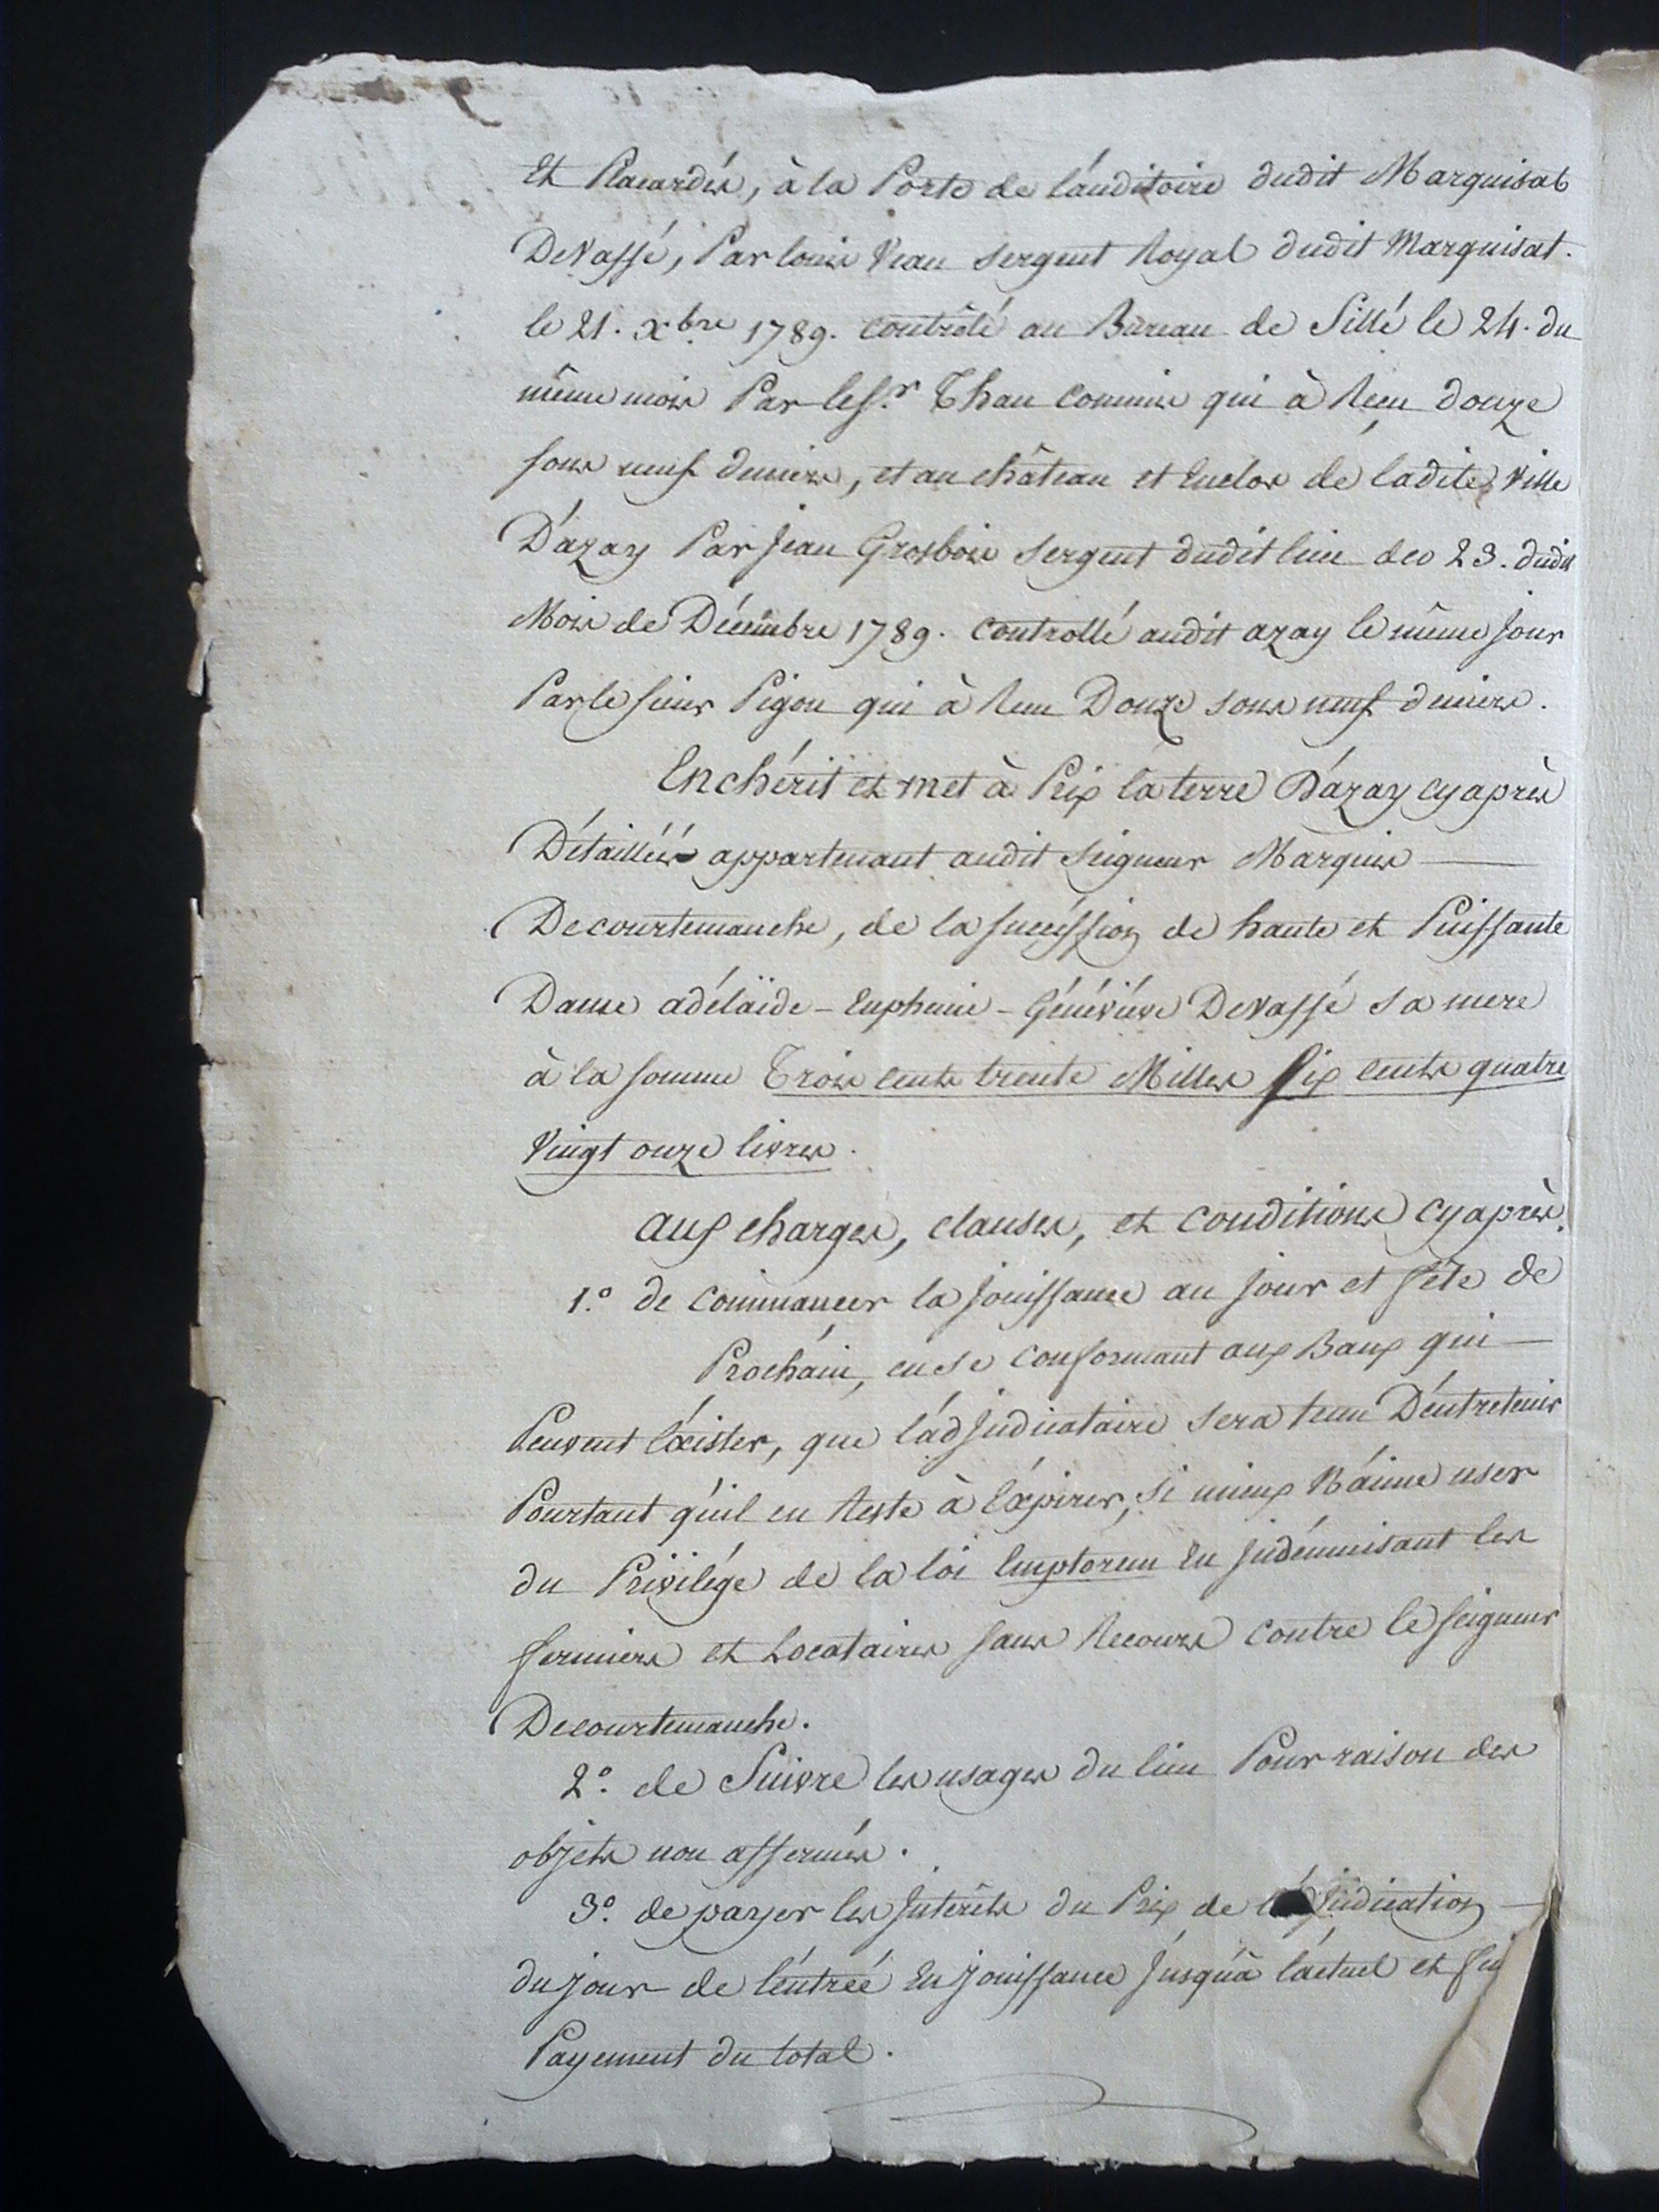 Et Placardés, à la Porte de l'auditoire dudit Marquisat
DeVassé, Par louis Veau sergent Royal dudit Marquisat.
le 21. xbre 1789. contrôlé au Bureau de Sillé le 24. du
même mois Par le Sr. Thau Commis qui à Reçu douze
sous neuf deniers, et au château et Enclos de ladite Ville
D'azay Par Jean Grosbois sergent dudit lieu des 23. dudit
Mois de Décembre 1789. Controllé audit azay le même Jour
Par le sieur Pigou qui à Reçu Douze sous neuf deniers.
Enchérit et met à Prix la terre D'azay cy après
Détaillée appartenant audit seigneur Marquis
Decourtemanche, de la succéssion de haute et Puissante
Dame adélaïde - Euphemie - Généviéve DeVassé sa mere
à la somme Trois cents trente Milles Six cents quatre
Vingt onze livres.
aux charges, clauses, et conditions cy après.
1.° de commancer la Jouissance au Jour et fête de
Prochain, en se conformant aux Baux qui
Peuvent Exister, que l'adJudicataire sera tenu D'entretenir
Pourtant qu'il en Reste à Expirer, Si mieux N'aime user
du Privilége de la loi Emptorem En Indémnisant les
fermiers et Locataires sans Recours Contre le seigneur
Decourtemanche.
2.° de Suivre les usages du lieu Pour raison des
objets non affermés.
3.° de payer les Intérêts du Prix de Judication
du jour de l'entreé En Jouissance Jusqu'à l'actuel et
Payement du total.